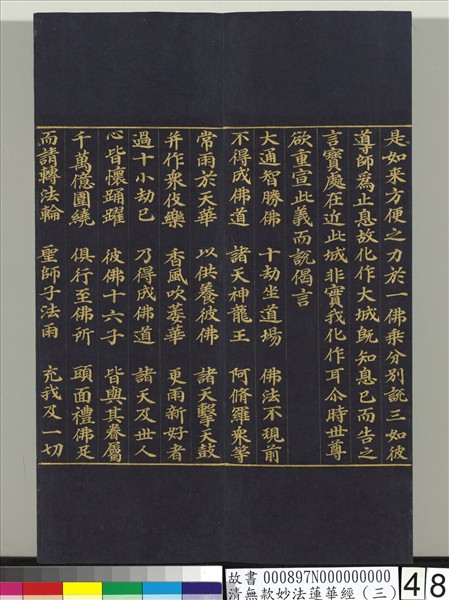 是如來方便之力於一佛乘分別說三如彼
導師為止息故化作大城既知息已而告之
言寶處在近此城非實我化作耳尒時世尊
欲重宣此義而說偈言
大通智勝佛　十劫坐道場　佛法不現前
不得成佛道　諸天神龍王　阿脩羅眾等
常雨於天華　以供養彼佛　諸天擊天鼓
并作眾伎樂　香風吹萎華　更雨新好者
過十小劫已　乃得成佛道　諸天及世人
心皆懷踊躍　彼佛十六子　皆與其眷屬
千萬億圍繞　俱行至佛所　頭面禮佛足
而請轉法輪　聖師子法雨　充我及一切
故書 000897N000000000
清無款妙法蓮華經（三）
48